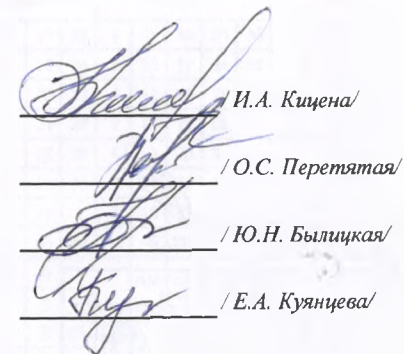 / И.А. Кицена/
/ О.С. Перетятая/
/ Ю.Н. Былицкая/
/ Е.А. Куянцева/